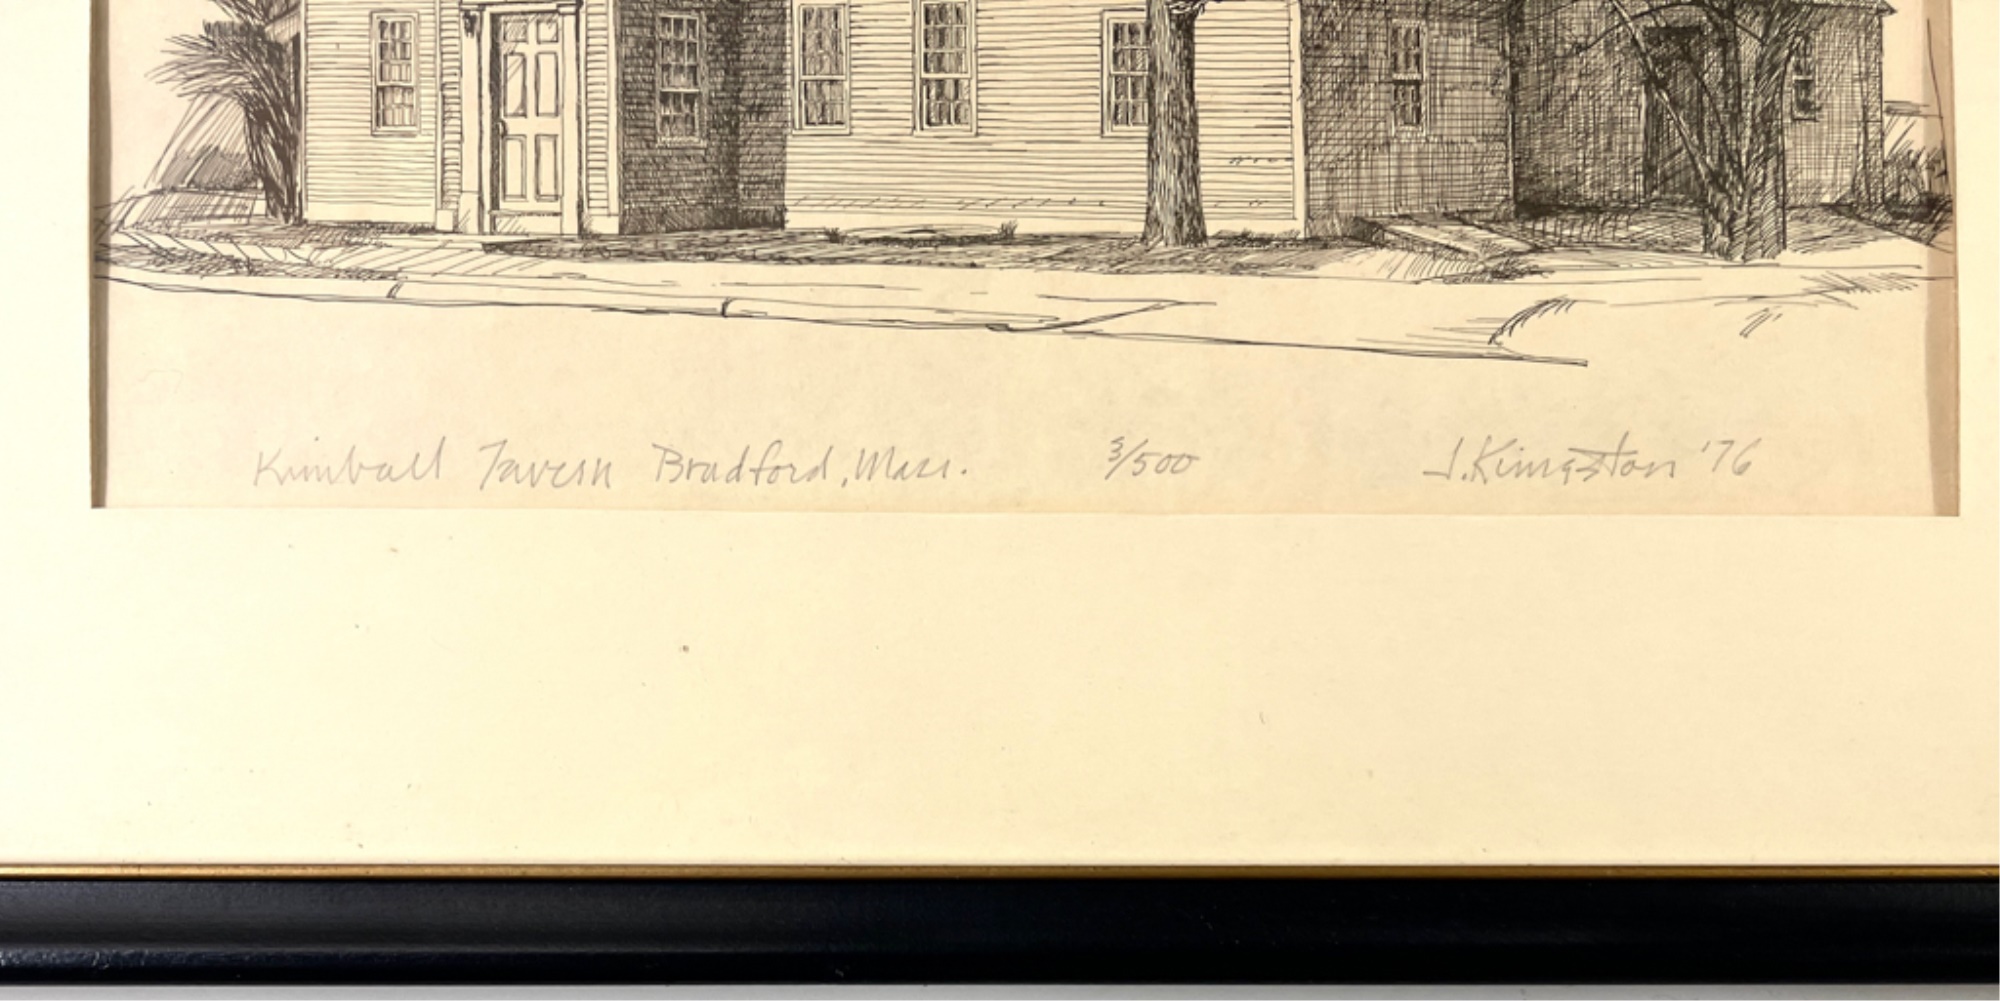 Kimball Tavern Bradford, Mass. 3/500 J. Kingston '76